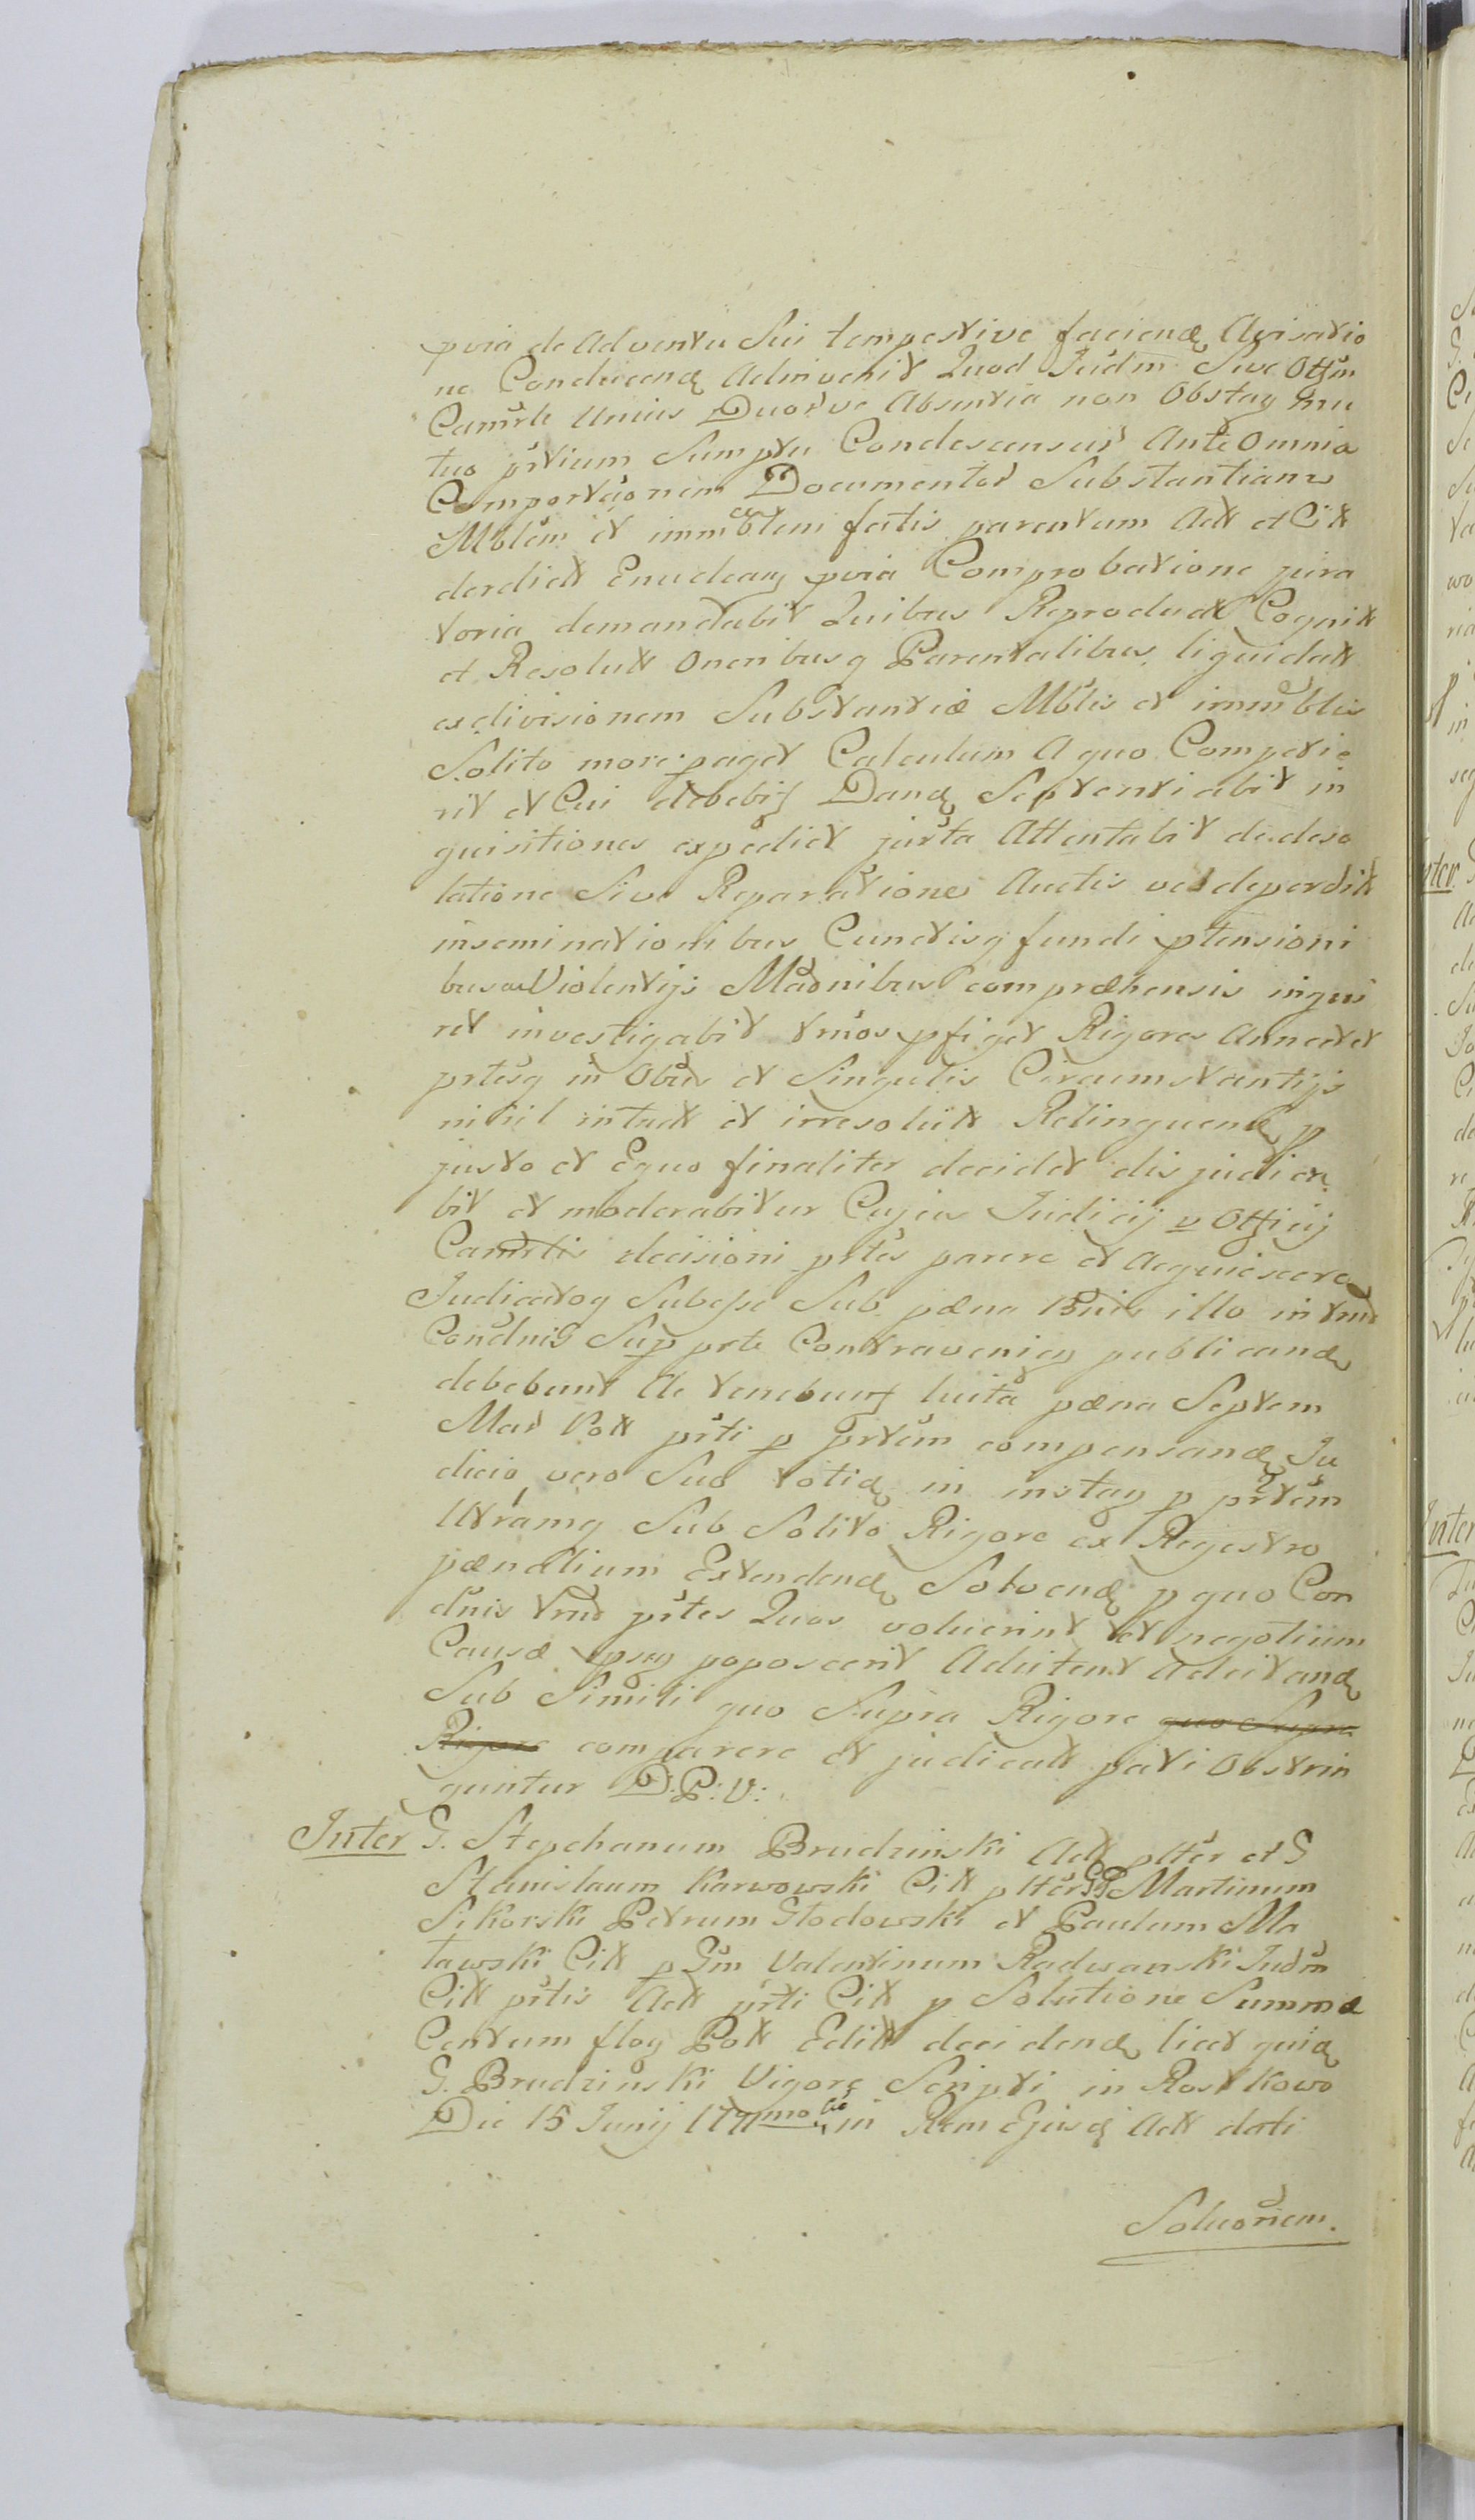 pvia de Adventu Sui tempestive faciend Avisatio
ne Conducend Adinvenit Quod Judm Sive Offm
Camrle Unius Duorve Absentia non Obstaq mu
tuo prtium Sumptu Condescensur Ante Omnia
Comportaonem Documentor Substantiam
Mblem et immblem fatis parentum Act et Cit
derelict Enudeaq pvia Comprobatione jura
toria demandabit Quibus Reproduct Cognit
et Resolut Oneribusq Parentalibus liquidat
exdivisionem Substantiæ Mblis et immblis
Solito more paget Calculum A quo Competie
rit et Cui debebit Dand Septentiabit in
quisitiones expediet juxta Attentabit de deso
latione Sive Reparatione Auctis vel deperdit
inseminationibus Cunctisq fundi ptensioni
bus ac Violentijs Madnibus compræhensis inqui
ret investigabit trnos pfiget Rigores Annectet
prtesq in Obus et Singulis Circumstantijs
nihil intact et irresolut Relinquend p
justo et Equo finaliter decidet disjudica
bit et moderabitur Cujus Judicij v Officij
Camrlis decisioni prtes parere et Acquiescere
Judicatoq Subesse Sub pæna Bnis illo in trno
Condnis Sup prte Contraveniē publicand
debebunt Ac tenebunt luita pæna Septem
Mar Pott prti p prtem compensand Ju
dicio vero Suo toties in instaq p prtem
Utramq Sub Solito Rigore ex Regestro
pænalium Extendend Solvend p quo Con
dnis trno prtes Quos voluerint et negotium
Causæ ipsq poposcerit Adcitent Adcitand
Sub Simili quo Supra Rigore quo Supra
Rigore comparere et judicat pati Obstrin
guntur D:P:V:
Inter G. Stephanum Brudzinski Act plter et G
Stanislaum Karwowski Cit plter GG Martinum
Sikorski Petrum Glodowski et Paulum Ma
tawski Cit p Gm Valentinum Radwanski Judm
Cit prtis Act prti Cit p Solutione Summæ
Centum floq Pott Edit decidend licet quia
G. Brudzinski Vigore Scripti in Rostkowo
Die 15 Junij in Rem Ejusd Act dati
Soluonem.